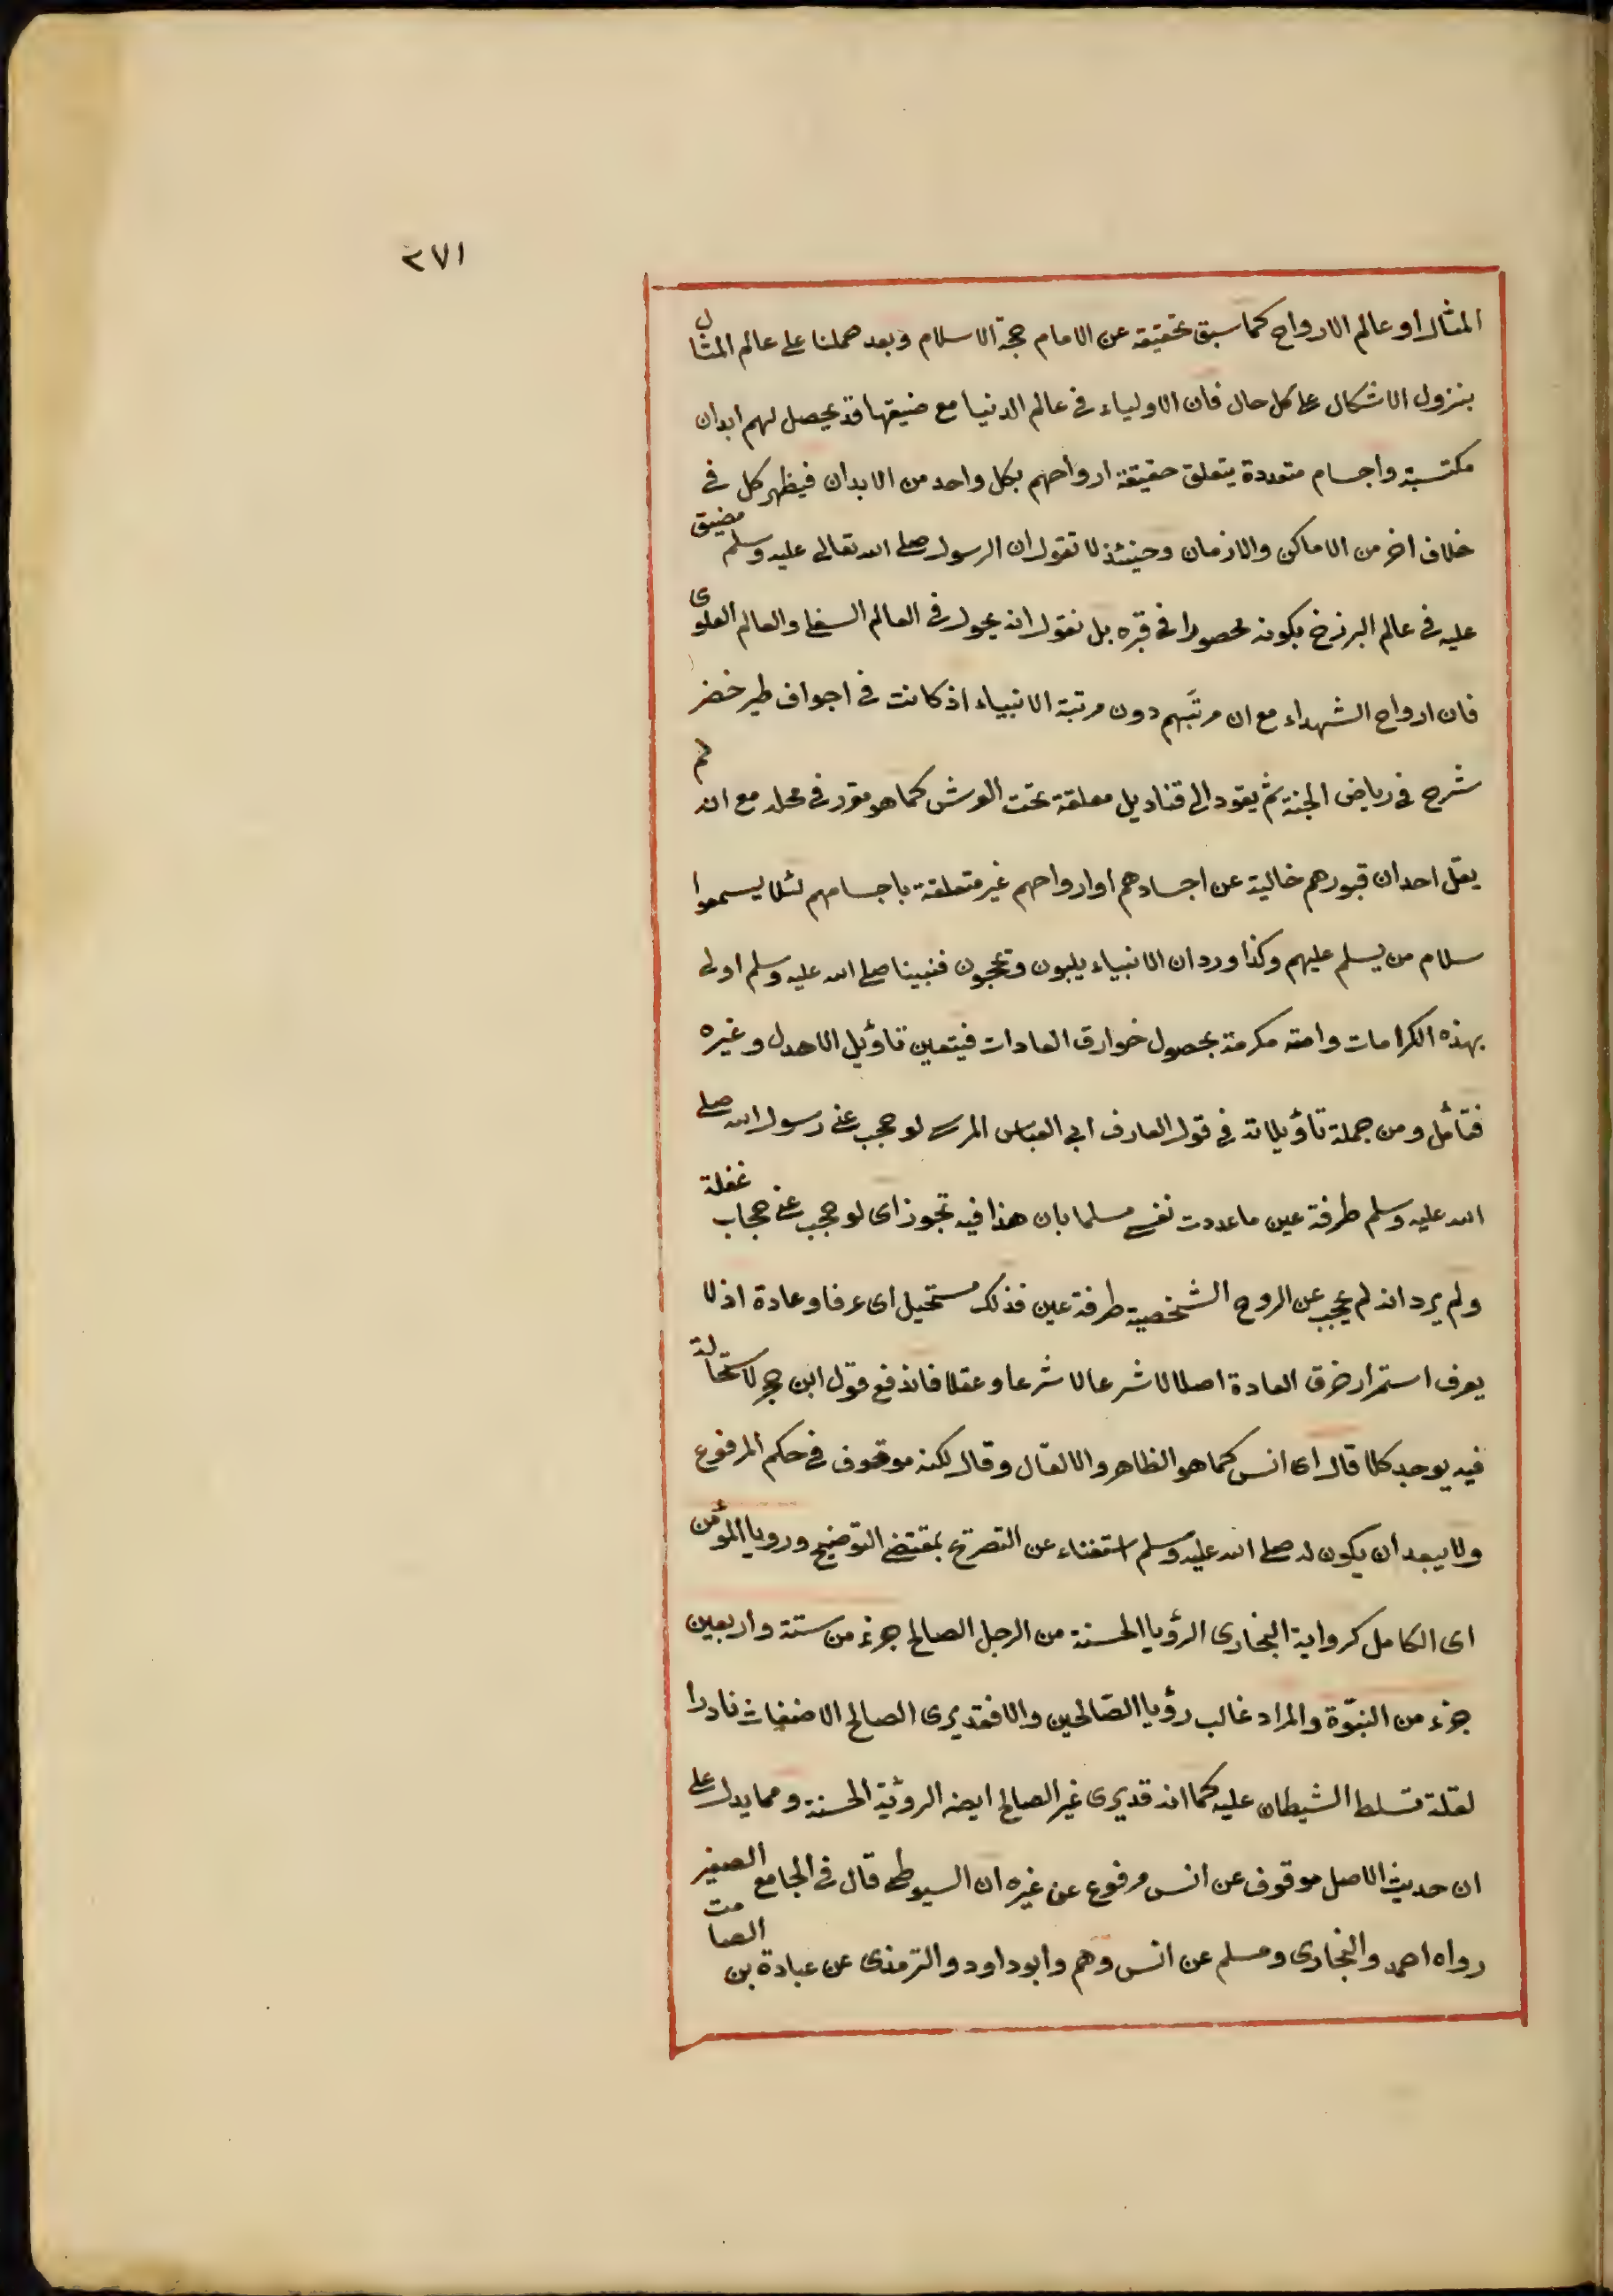 ٢٧١
المثال او عالم الارواح كما سبق تحقيقه عن الامام حجة الاسلام وبعد حملنا على عالم المثال
بنزول الاشكال على كل حال فان الاولياء في عالم الدنيا مع ضيقها قد يحصل لهم ابدان
مكتسبة واجسام متعددة يتعلق حقيقة ارواحهم بكل واحد من الابدان فيظهر كل في
خلاف اخر من الاماكن والازمان وحينئذ لا تقول ان الرسول صلى الله تعالى عليه وسلم مضيق
عليه في عالم البرزخ بكونه محصورا في قبره بل نقول انه يجول في العالم السفلى والعالم العلوى
فان ارواح الشهداء مع ان مرتبتهم دون مرتبة الانبياء اذ كانت في اجواف طير خضر
شرح في رياض الجنة ثم يعود الى قناديل معلقة تحت العرش كما هو مقرر في محله مع انه لم
يقل احد ان قبورهم خالية عن اجسادهم او ارواحهم غير متعلقة باجسامهم لئلا يسمعوا
سلام من يسلم عليهم وكذا ورد ان الانبياء يلبون ويحجون فنبينا صلى الله عليه وسلم اولى
بهذه الكرامات وامته مكرمة بحصول خوارق العادات فيتعين تاؤيل الاهدل وغيره
فتامل ومن جملة تاؤيلاته في قول العارف ابي العباس المرسى لو حجب عنى رسول الله صلى
الله عليه وسلم طرفة عين ما عددت نفسى مسلما بان هذا فيه تجوز اى لو حجب عنى حجاب غفلة
ولم يرد انه لم يحجب عن الروح الشخصية طرفة عين فذلك مستحيل اى عرفا وعادة اذ لا
يعرف استمرار خرق العادة اصلا لا شرعا لا شرعا وعقلا فاندفع قول ابن حجر لا استحالة
فيه بوجه كلا قال اى انس كما هو الظاهر والا لقال وقال لكنه موقوف في حكم المرفوع
ولا يبعد ان يكون له صلى الله عليه وسلم استغناء عن التصريح بمقتضى التوضيح ورويا المؤمن
اى الكامل كرواية البخارى الرؤيا الحسنة من الرجل الصالح جزء من ستة واربعين
جزء من النبوّة والمراد غالب رؤيا الصّالحين والا فقد يرى الصالح الاضغاث نادرا
لقلة تسلط الشيطان عليه كما انه قد يرى غير الصالح ايضه الروئية الحسنة ومما يدل على
ان حديث الاصل موقوف عن انس مرفوع عن غيره ان السيوطى قال في الجامع الصغير
رواه احمد والبخارى ومسلم عن انس وهم وابو داود والترمذى عن عبادة بن الصامت